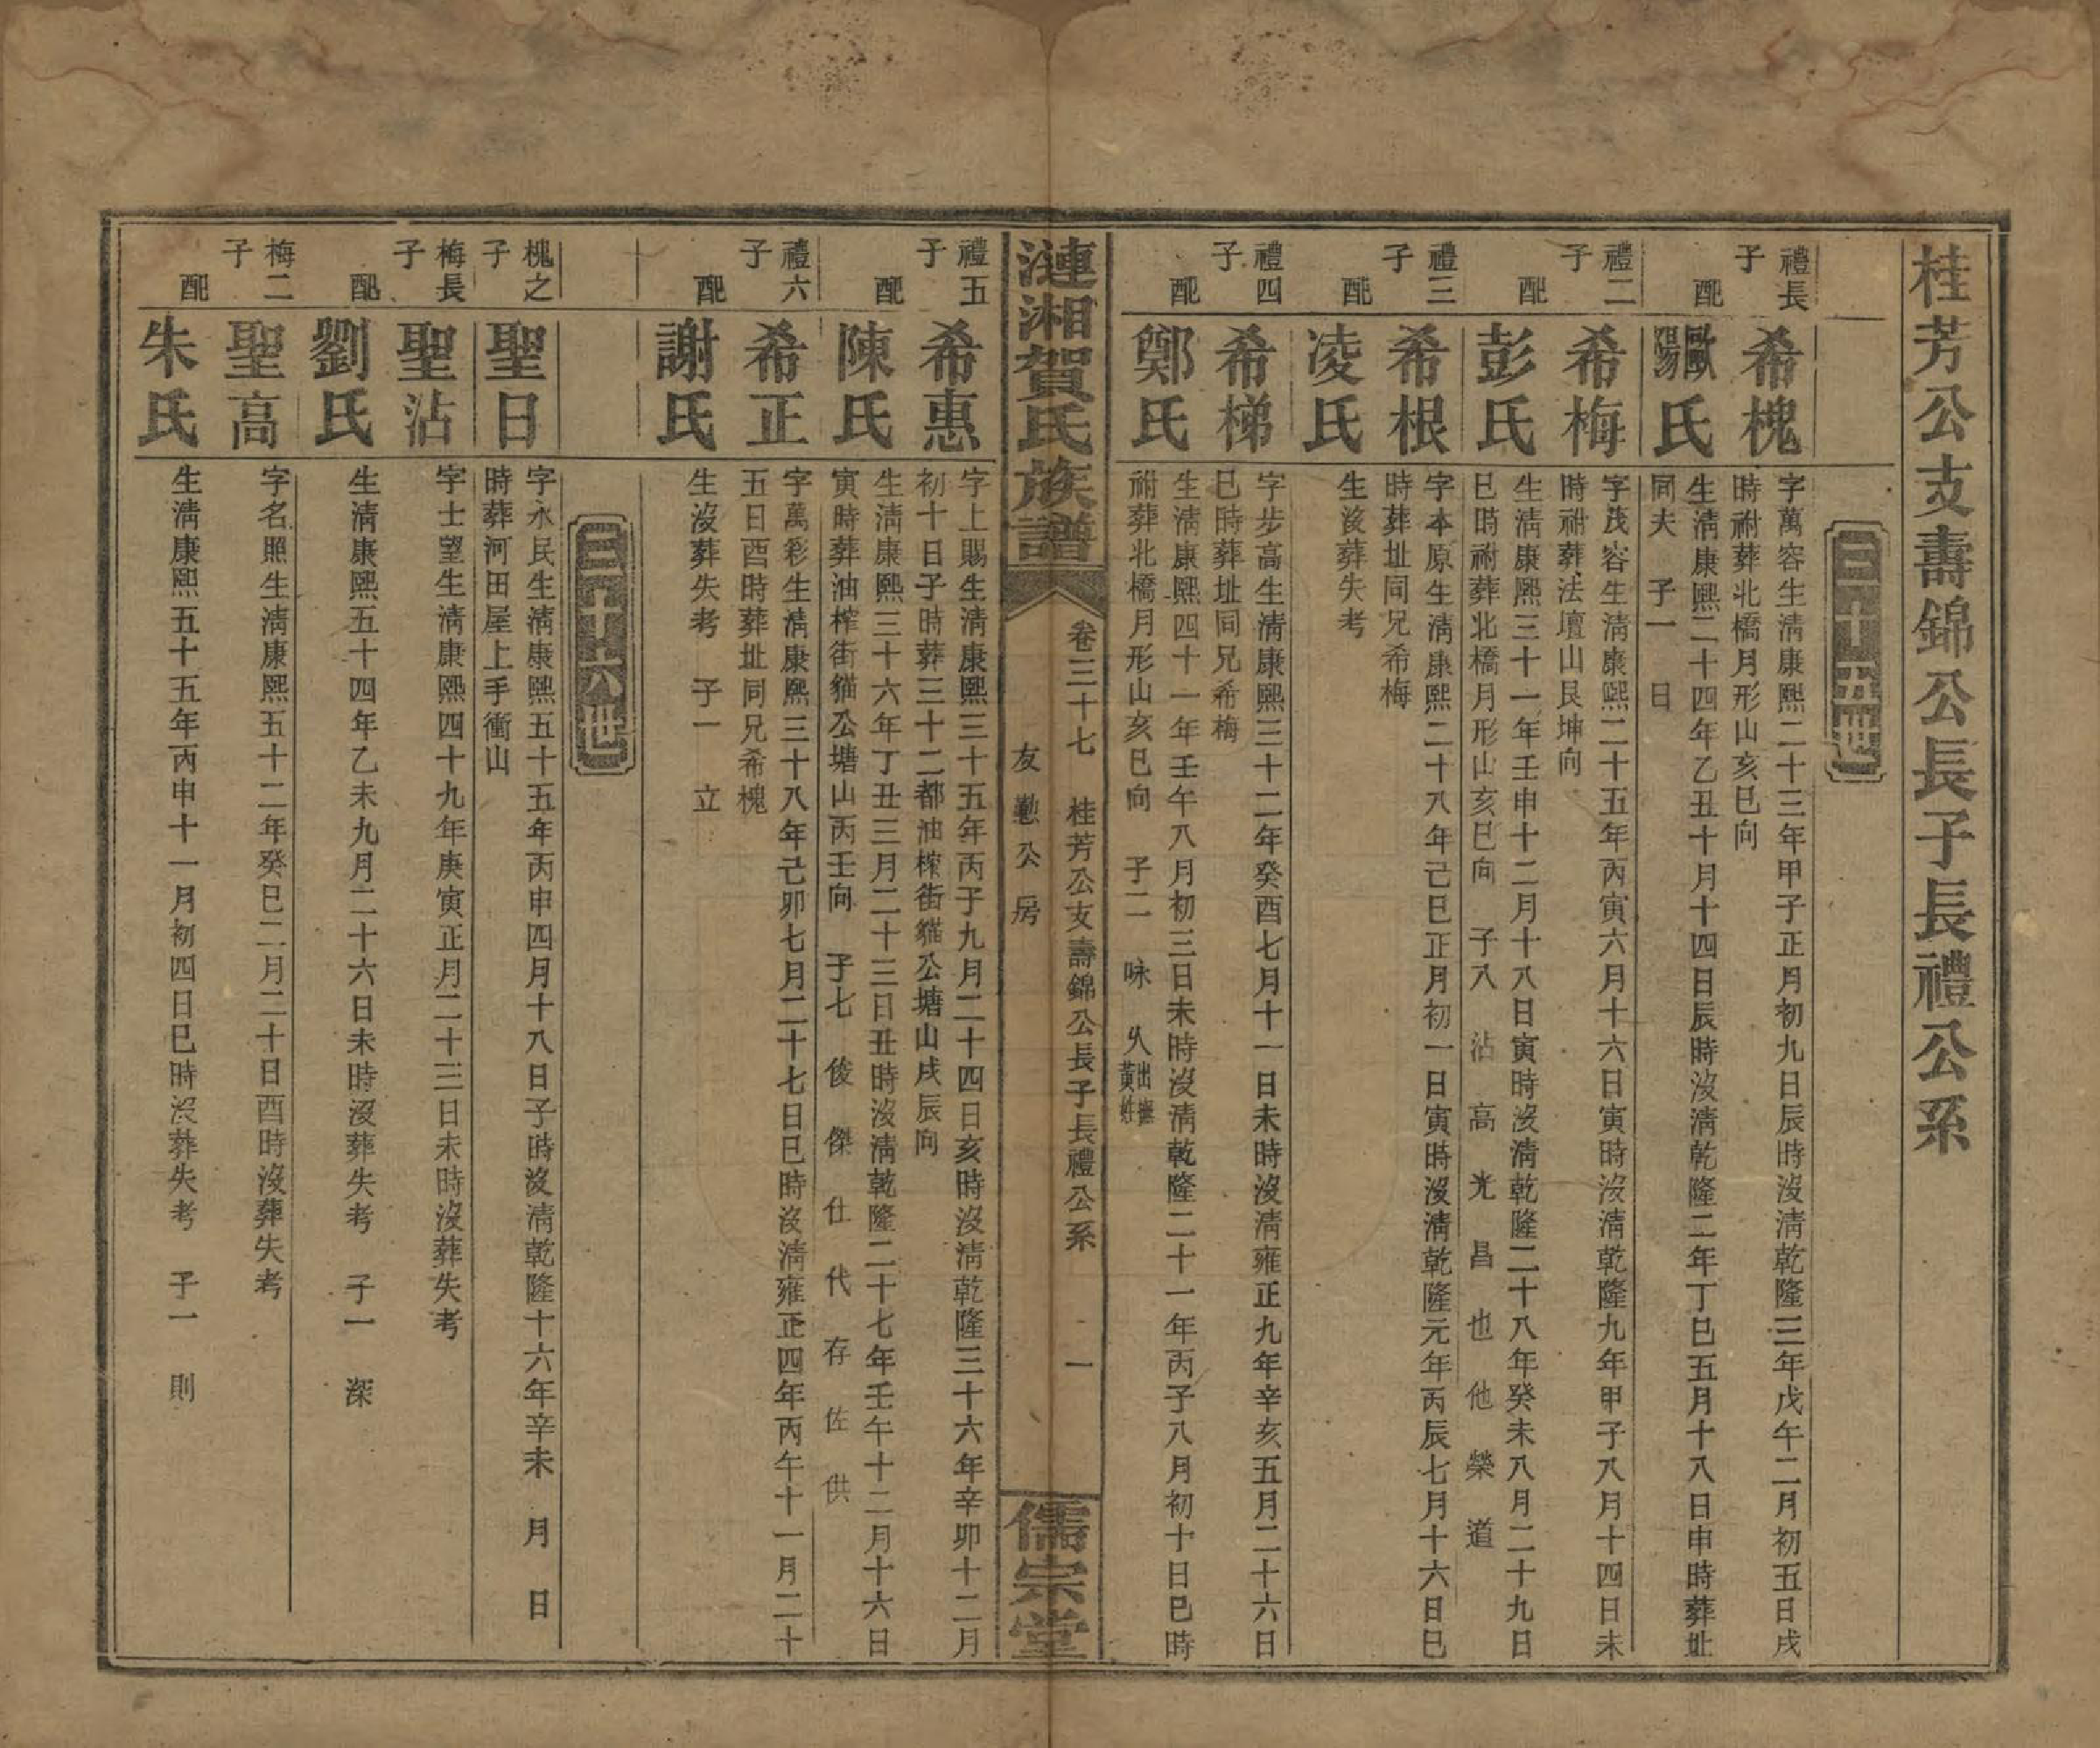 桂芳公支壽錦公長子長禮公系
三十五世
禮長子
希槐
字萬容生清康熙二十三年甲子正月初九日辰時沒清乾隆三年戊午二月初五日戌
時祔葬北橋月形山亥巳向
配
歐陽氏
生清康熙二十四年乙丑十月十四日辰時沒清乾隆二年丁巳五月十八日申時葬址
同夫　子一　日
禮二子
希梅
字茂容生清康熙二十五年丙寅六月十六日寅時沒清乾隆九年甲子八月十四日未
時祔葬法壇山艮坤向
配
彭氏
生清康熙三十一年壬申十二月十八日寅時沒清乾隆二十八年癸未八月二十九日
巳時祔葬北橋月形山亥巳向　子八　沾　高　光　昌　也　他　榮　道
禮三子
希根
字本原生清康熙二十八年己巳正月初一日寅時沒清乾隆元年丙辰七月十六日巳
時葬址同兄希梅
配
凌氏
生沒葬失考
禮四子
希梯
字步高生清康熙三十二年癸酉七月十一日未時沒清雍正九年辛亥五月二十六日
巳時葬址同兄希梅
配
鄭氏
生清康熙四十一年壬午八月初三日未時沒清乾隆二十一年丙子八月初十日巳時
祔葬北橋月形山亥巳向　子二　咏　久出撫黃姓
漣湘賀氏族譜
卷三十七　桂芳公支壽錦公長子長禮公系　一
友勳公房
儒宗堂
禮五子
希惠
字上賜生清康熙三十五年丙子九月二十四日亥時沒清乾隆三十六年辛卯十二月
初十日子時葬三十二都油榨街貓公塘山戌辰向
配
陳氏
生清康熙三十六年丁丑三月二十三日丑時沒清乾隆二十七年壬午十二月十六日
寅時葬油榨街貓公塘山丙壬向　子七　俊　傑　仕　代　存　佐　供
禮六子
希正
字萬彩生清康熙三十八年己卯七月二十七日巳時沒清雍正四年丙午十一月二十
五日酉時葬址同兄希槐
配
謝氏
生沒葬失考　子一　立
三十六世
槐之子
聖日
字永民生清康熙五十五年丙申四月十八日子時沒清乾隆十六年辛未　月　日
時葬河田屋上手衝山
梅長子
聖沾
字士望生清康熙四十九年庚寅正月二十三日未時沒葬失考
配
劉氏
生清康熙五十四年乙未九月二十六日未時沒葬失考　子一　深
梅二子
聖高
字名照生清康熙五十二年癸巳二月二十日酉時沒葬失考
配
朱氏
生清康熙五十五年丙申十一月初四日巳時沒葬失考　子一　則